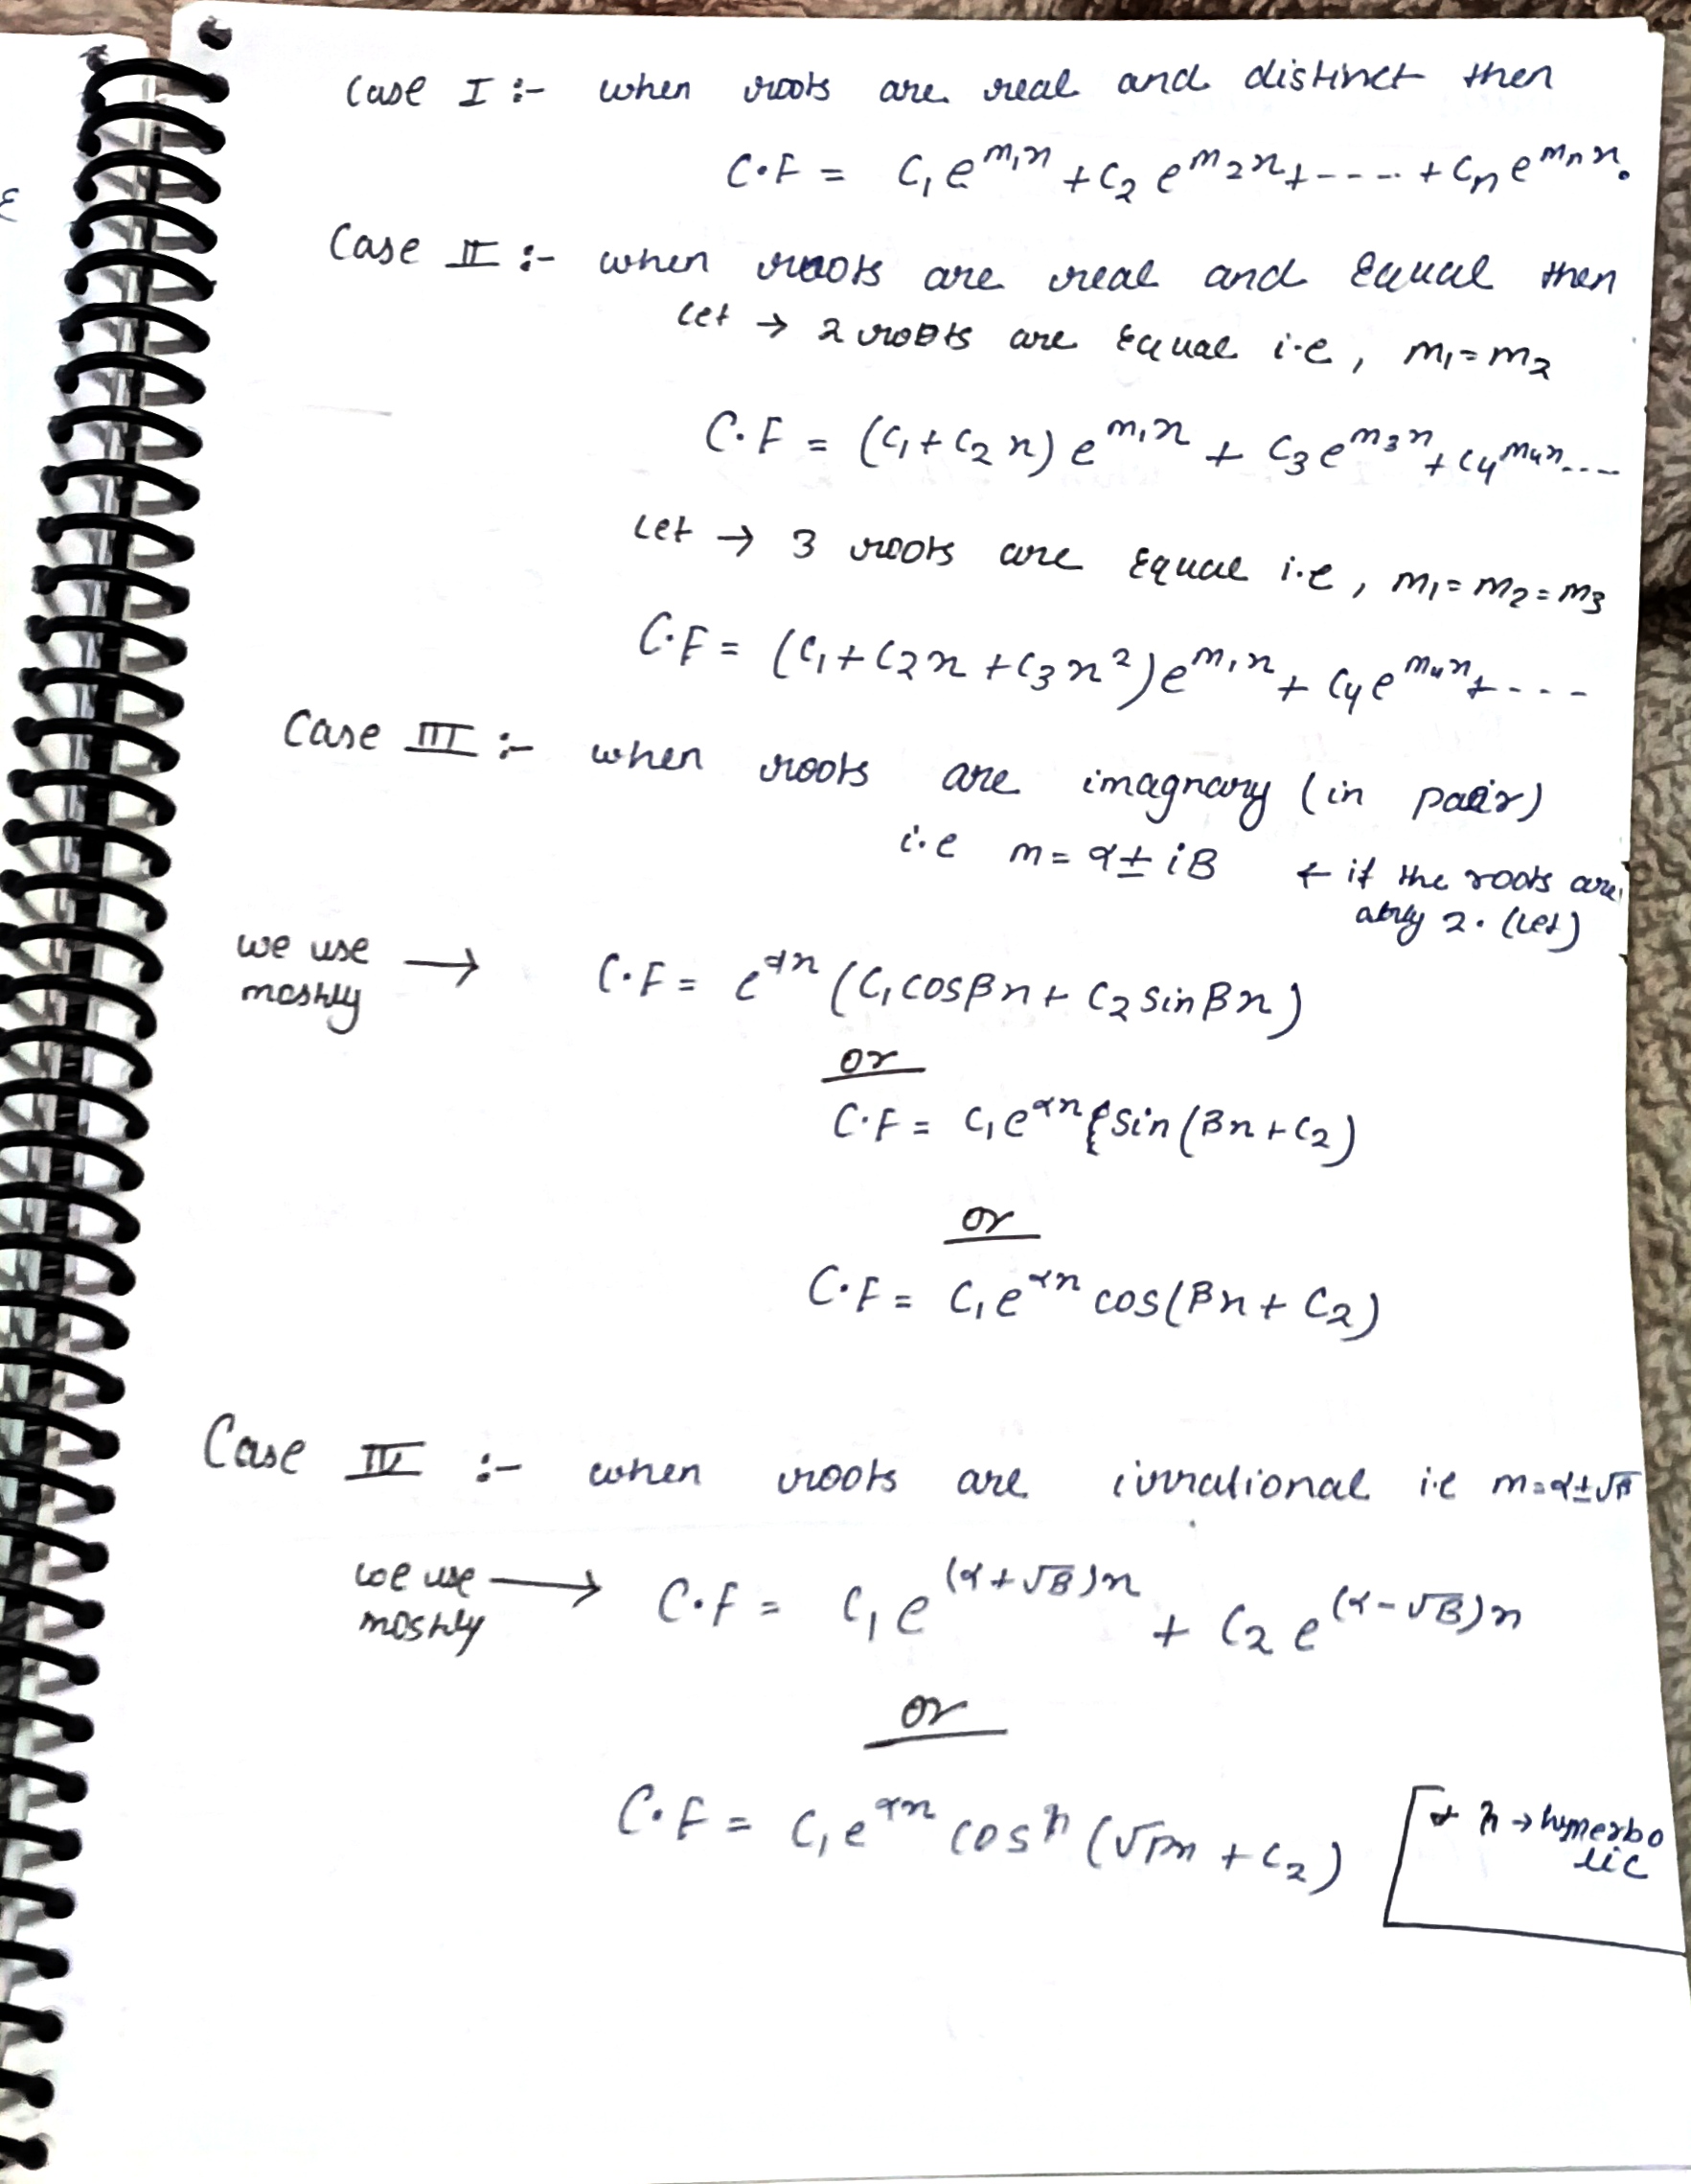 ε
Case I :- when roots are real and distinct then
C.F = C₁e^{m₁x} + C₂ e^{m₂x} + ---- + Cₙ e^{mₙx}.
Case II :- when roots are real and Equal then
Let → 2 roots are Equal i.e, m₁=m₂
C.F = (C₁+C₂x) e^{m₁x} + C₃e^{m₃x} + C₄^{m₄x}---
Let → 3 roots are Equal i.e, m₁=m₂=m₃
C.F = (C₁+C₂x+C₃x²)e^{m₁x} + C₄e^{m₄x} + ---
Case III :- when roots are imagnary (in pair)
i.e m = α ± iβ ← if the roots are
only 2. (Let)
we use mostly → C.F = e^{αx} (C₁cosβx + C₂ sinβx)
or
C.F = C₁e^{αx} {sin(βx+C₂)
or
C.F = C₁e^{αx} cos(βx + C₂)
Case IV :- when roots are irrational i.e m=α±√β
we use mostly → C.F = C₁e^{(α+√β)x} + C₂e^{(α-√β)x}
or
C.F = C₁e^{αx} cosh (√βx + C₂)
h → hyperbo
lic